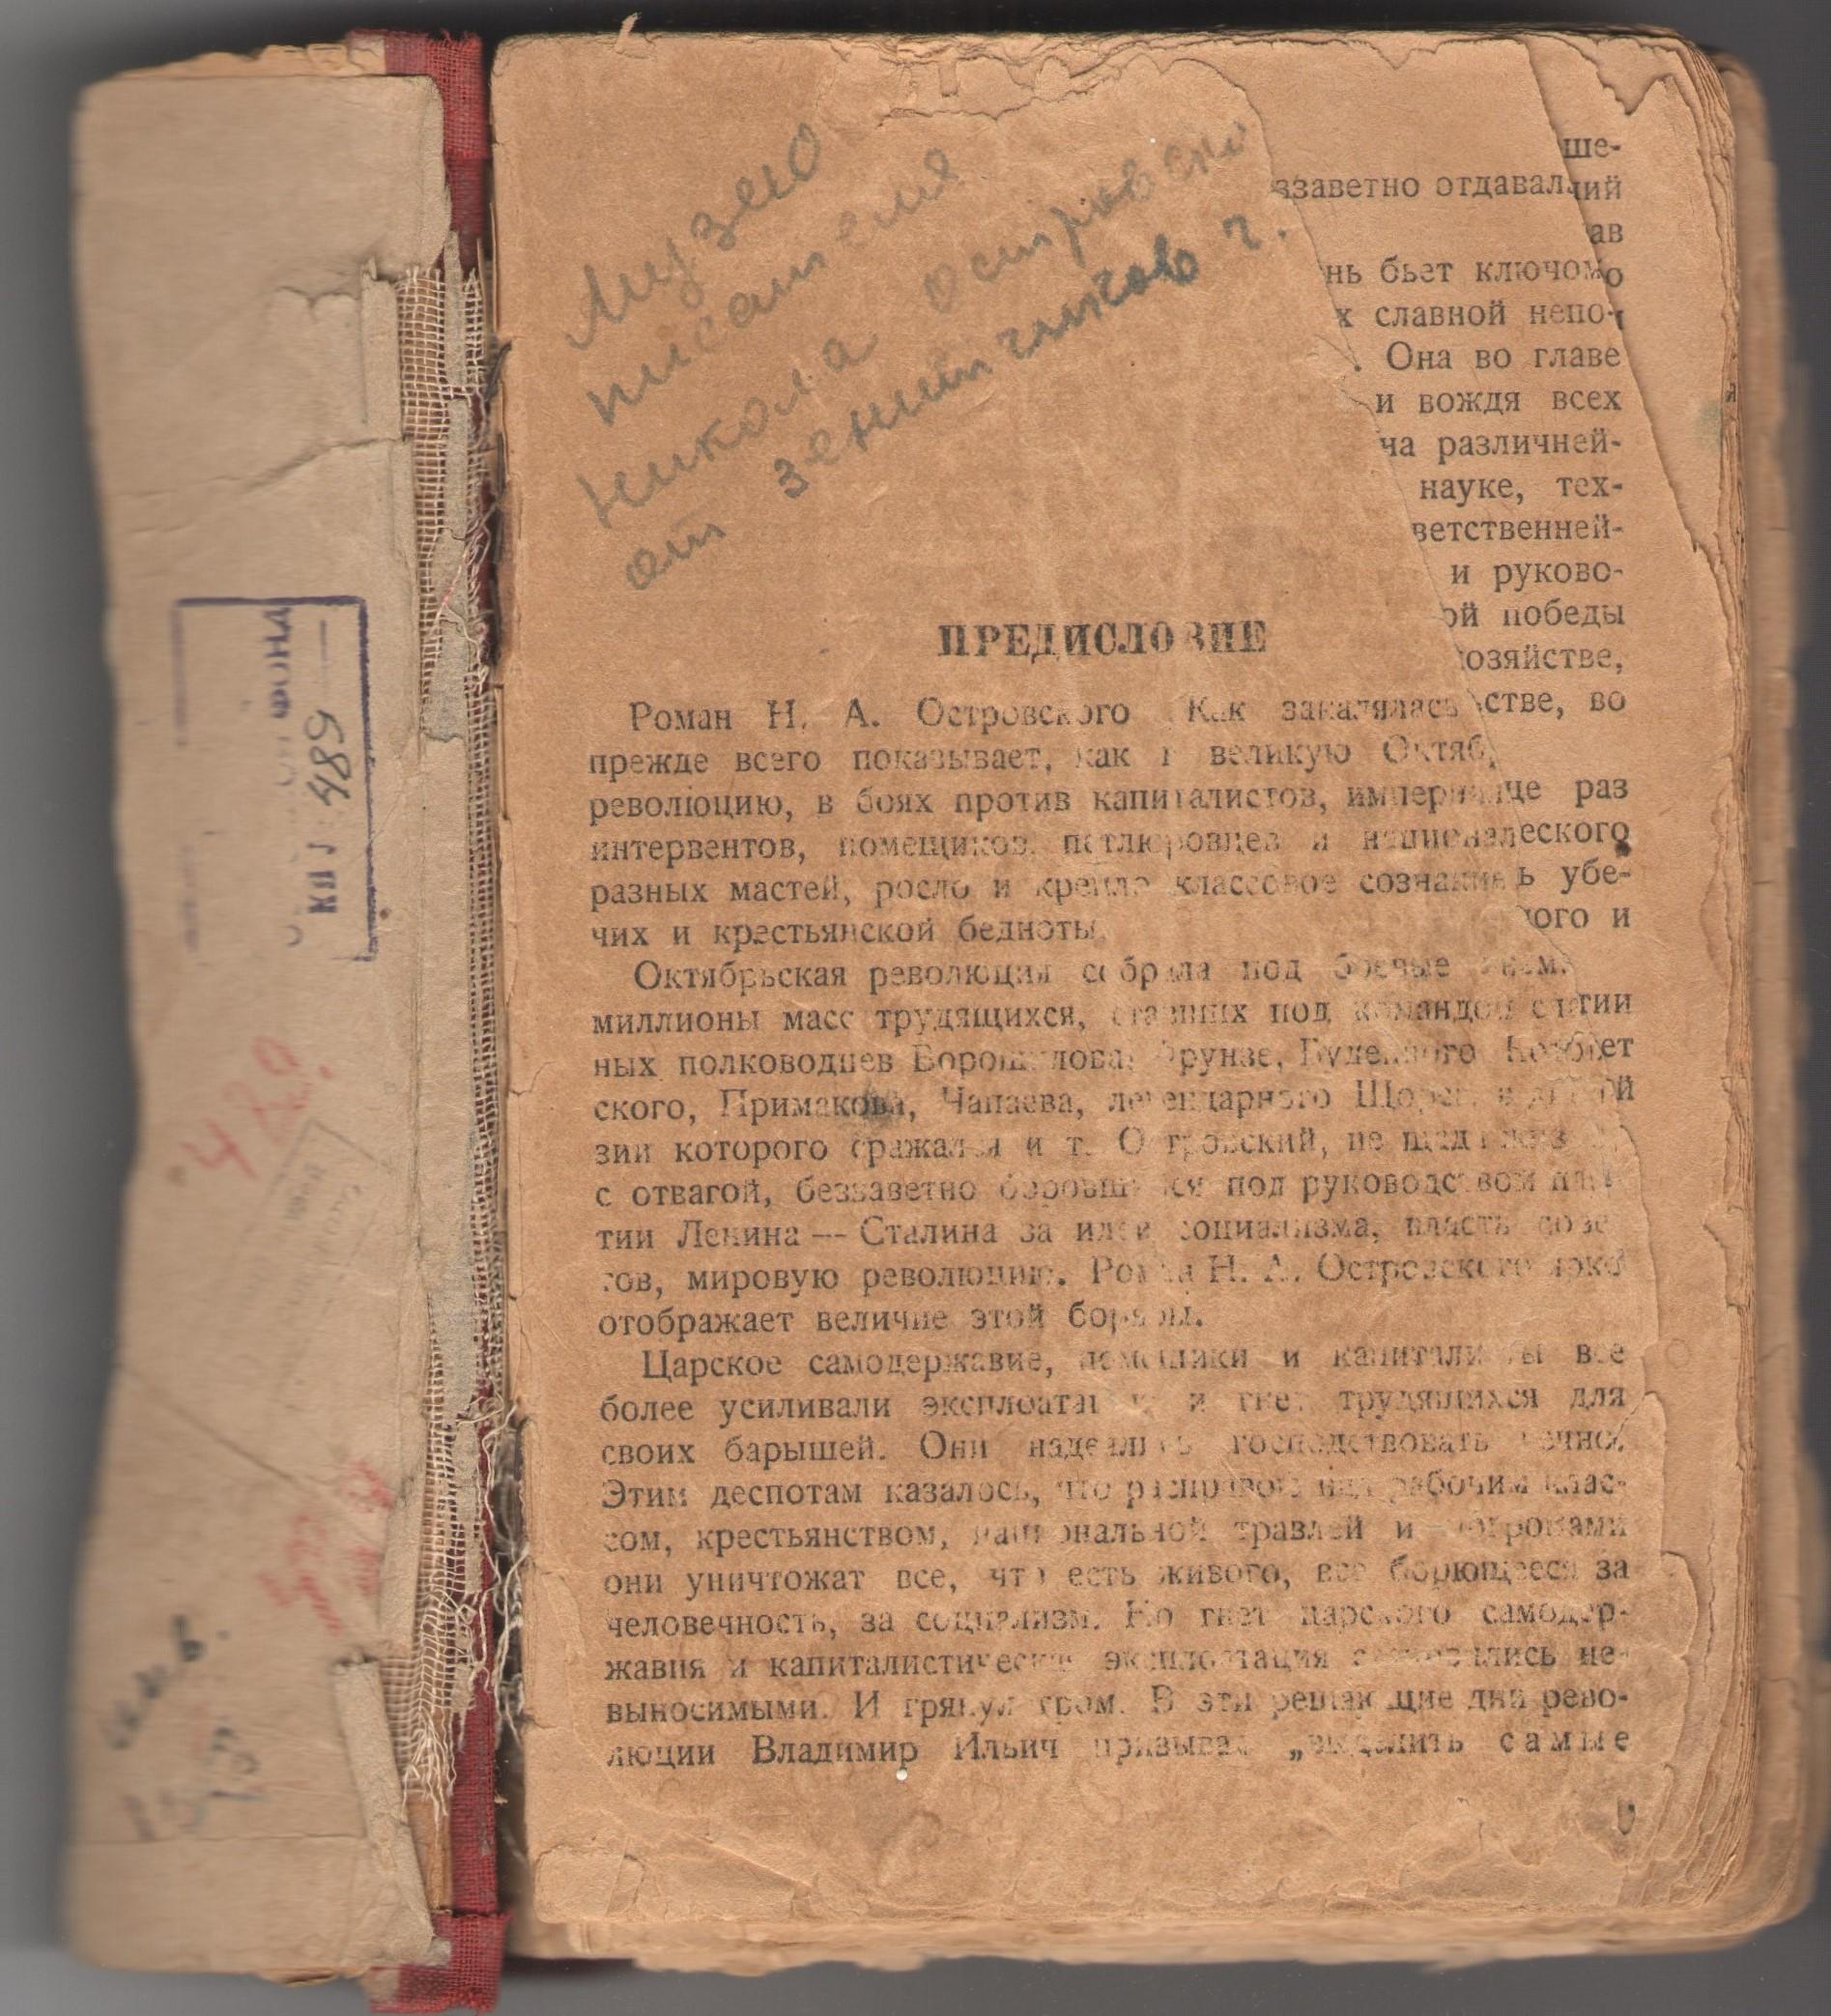 Музею
писателя
Никола Островско
от зенитчиков ч.
ше-
ззаветно отдавал
ний
ав
нь бьет ключом
о
х славной непо-
. Она во главе
и вождя всех
ча различней-
науке, тех-
ветственней-
и руково-
ой победы
озяйстве,
стве, во
ПРЕДИСЛОВИЕ
Роман Н. А. Островского Как закалялась
прежде всего показывает, как в великую Октяб
революцию, в боях против капиталистов, импери
це раз
интервентов, помещиков, петлюровцев и национал
еского
разных мастей, росло и крепло классовое сознание
ь убе-
чих и крестьянской бедноты.
ого и
Октябрьская революция собрала под боевые знам
миллионы масс трудящихся, ставших под
тии
ных полководцев Ворошилова, Фрунзе, Буденного
ет
ского, Примакова, Чапаева, легендарного Щорса,
й
зии которого сражался и т. Островский, не щадя
с отвагой, беззаветно боровшихся под руководством пар
тии Ленина — Сталина за идеи социализма, власть сове
тов, мировую революцию. Роман Н. А. Островского ярко
отображает величие этой борьбы.
Царское самодержавие, помещики и капиталисты все
более усиливали эксплоатацию и гнет трудящихся для
своих барышей. Они надеялись господствовать вечно.
Этим деспотам казалось, что расправою над рабочим клас-
сом, крестьянством, национальной травлей и погромами
они уничтожат все, что есть живого, все борющееся за
человечность, за социализм. Но гнет царского самодер-
жавия и капиталистическая эксплоатация становились не-
выносимыми. И грянул гром. В эти решающие дни рево-
люции Владимир Ильич призывал „выделить самые
ФОНД
КП 489
420.